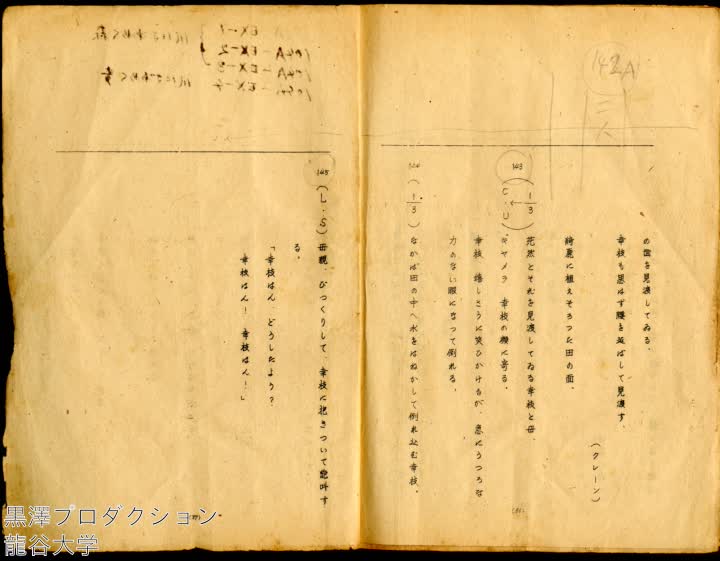 142A
三人
の面を見渡してゐる。
幸枝も思はず腰を延ばして見渡す。
(クレーン)
綺麗に植えそろつた田の面。
143 (1/3)
茫然とそれを見渡してゐる幸枝と母。
(C・U) キヤメラ 幸枝の横に寄る。
幸枝 嬉しさうに笑ひかけるが、急にうつろな
力のない眼になつて倒れる。
144 (1/3) なかば田の中へ水をはねかして倒れ込む幸枝。
145 (L・S) 母親、びつくりして、幸枝に抱きついて絶叫す
る。
「幸枝はん どうしたよう?
幸枝はん! 幸枝はん!」
EX-1
104A-EX-2
104A-EX-3
104A-EX-4
黒澤プロダクション
龍谷大学